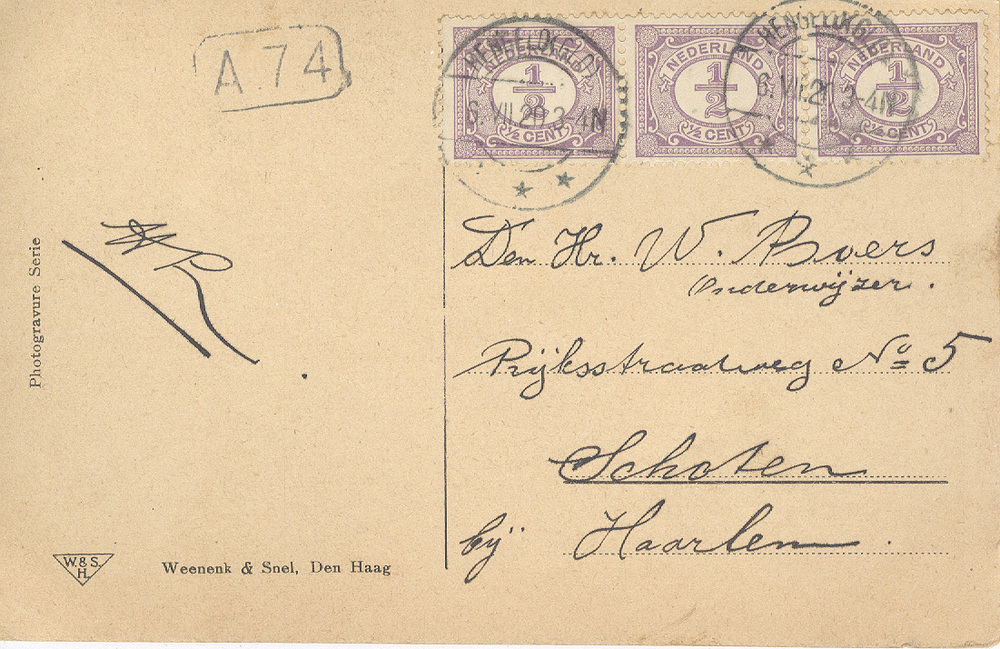 A.74
HENGELO(G)
6.VII.20.3-4N
NEDERLAND
1/2
½ CENT
NEDERLAND
1/2
½ CENT
HENGELO(G)
6.VII.20 3-4N
NEDERLAND
1/2
½ CENT
Photogravure Serie
Den Hr. W. Boers
Onderwijzer.
Rijksstraatweg No 5
Schoten
bij Haarlem.
W.& S.
H.
Weenenk & Snel, Den Haag